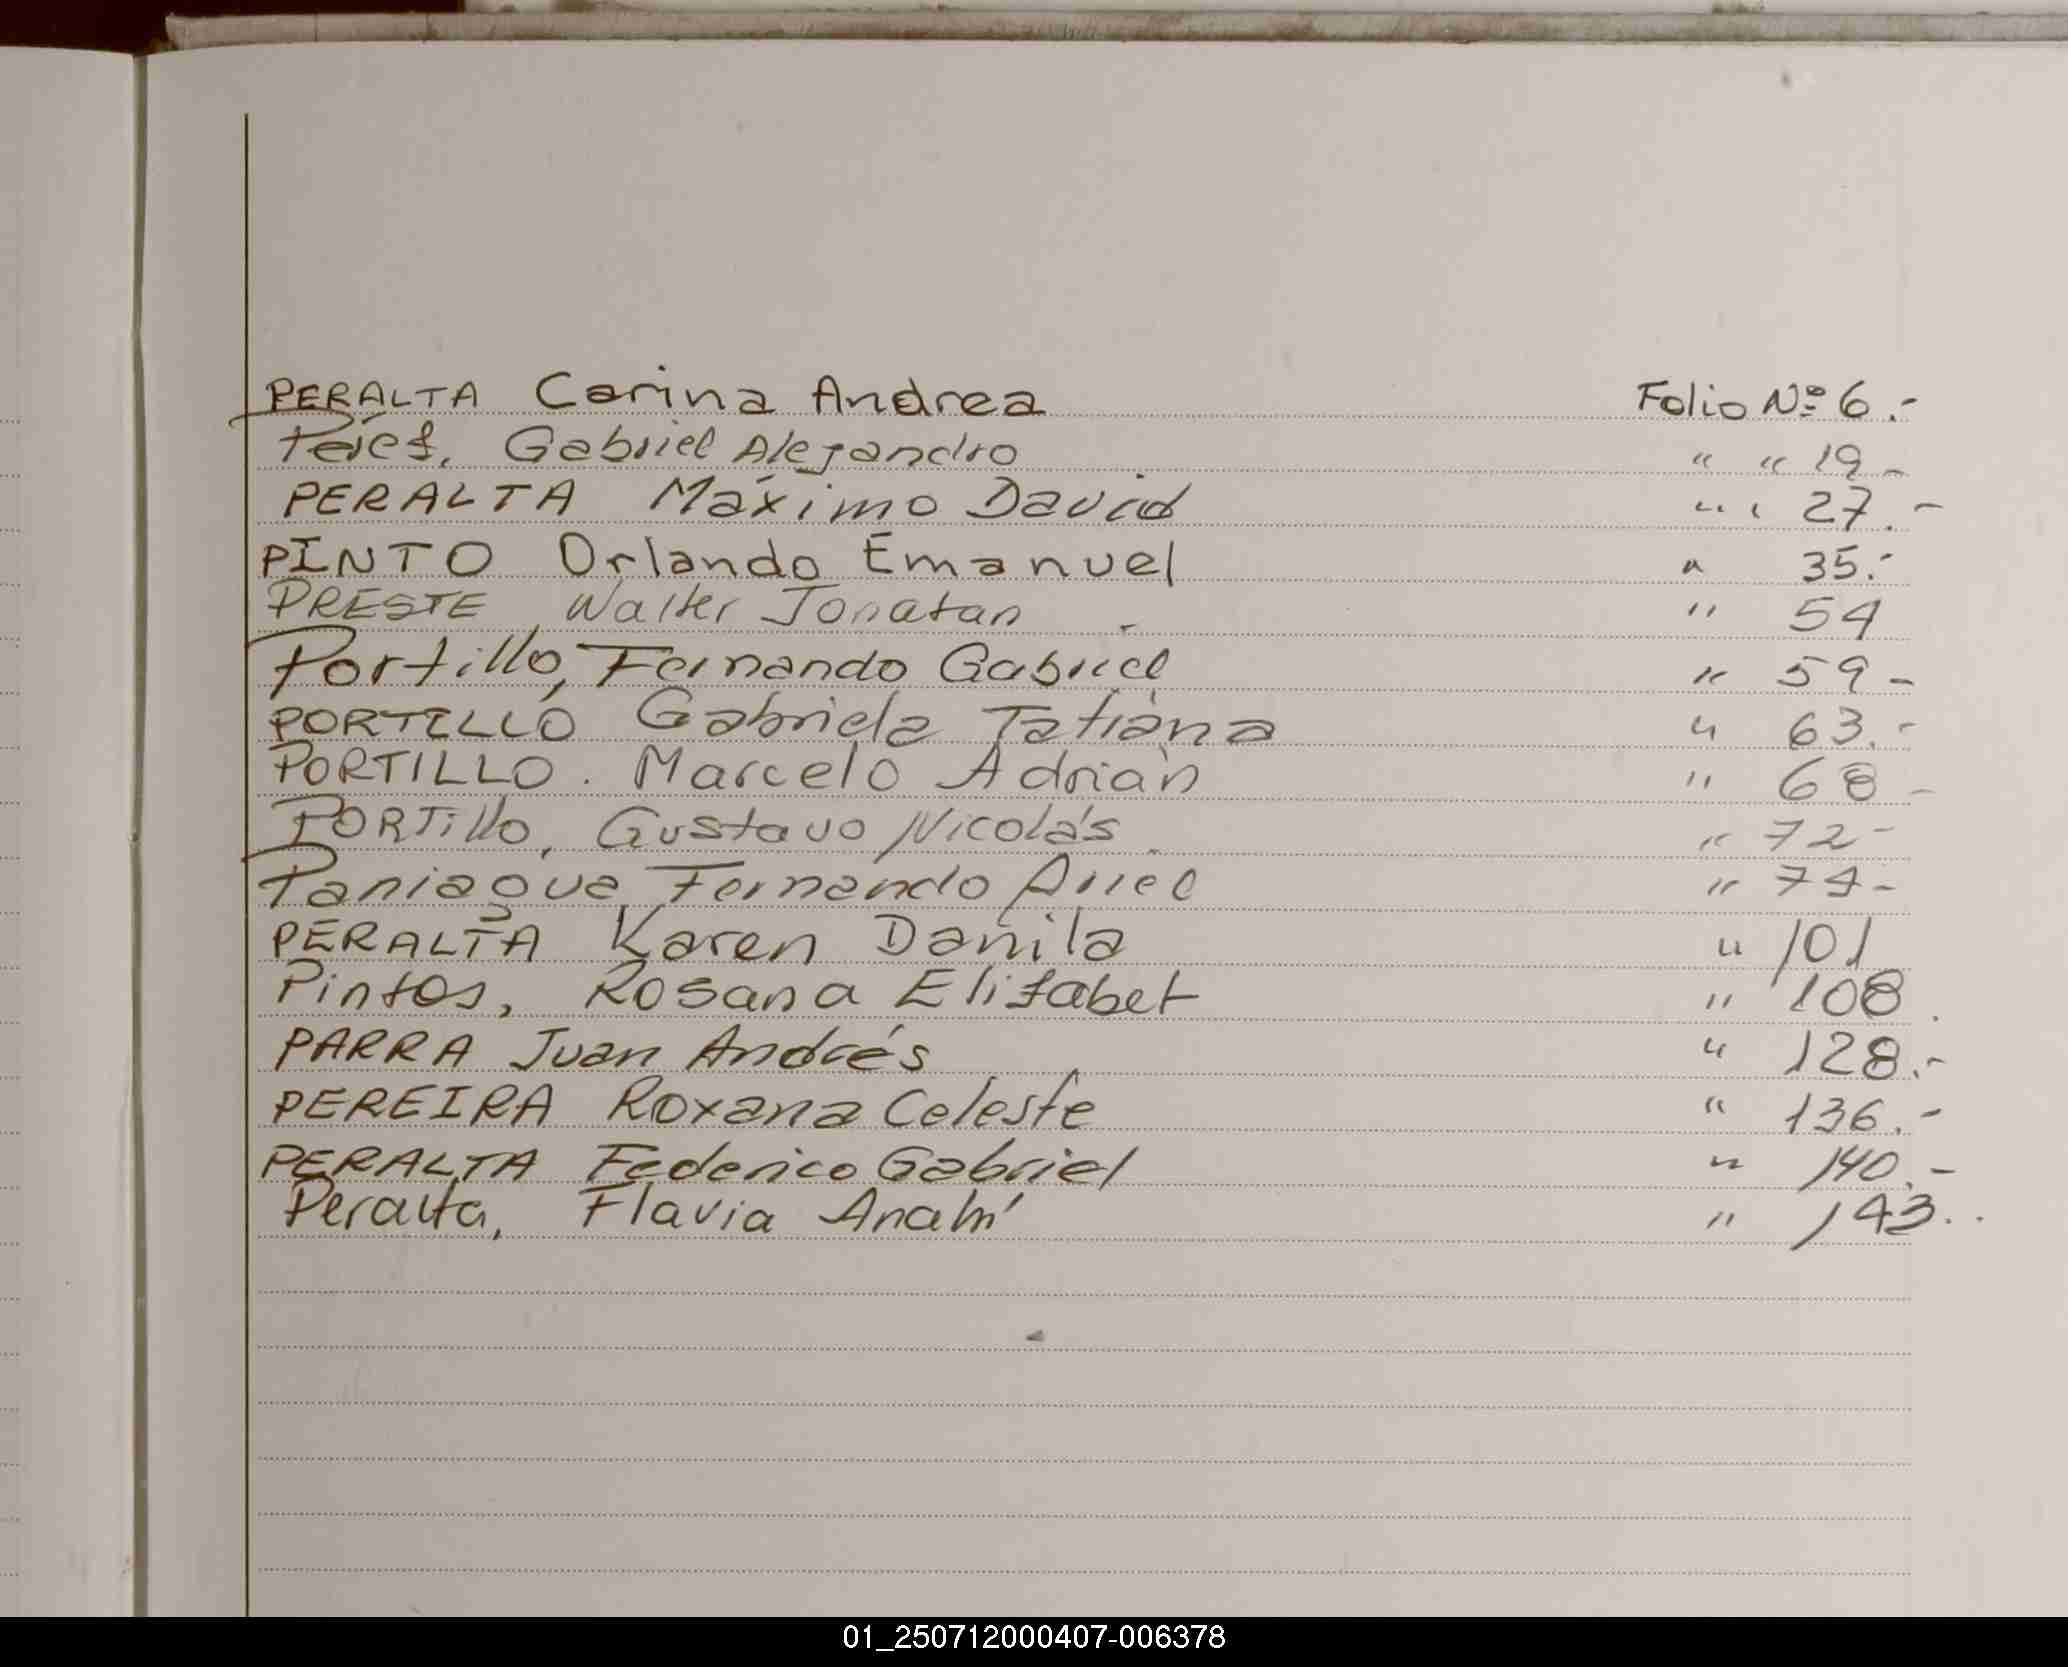 PERALTA Carina Andrea Folio Nº 6.-
Pérez, Gabriel Alejandro " " 19-
PERALTA Máximo David " " 27.-
PINTO Orlando Emanuel " 35.-
PRESTE Walter Jonatan. " 54
Portillo, Fernando Gabriel " 59-
PORTILLO Gabriela Tatiana " 63.-
PORTILLO. Marcelo Adrián " 68-
PORTillo, Gustavo Nicolás. " 72-
Paniagua, Fernando Ariel " 74-
PERALTA Karen Danila " 101
Pintos, Rosana Elizabet " 108.
PARRA Juan Andrés " 128.-
PEREIRA Roxana Celeste " 136.-
PERALTA Federico Gabriel " 140.-
Peralta, Flavia Anahí " 143..
01_250712000407-006378